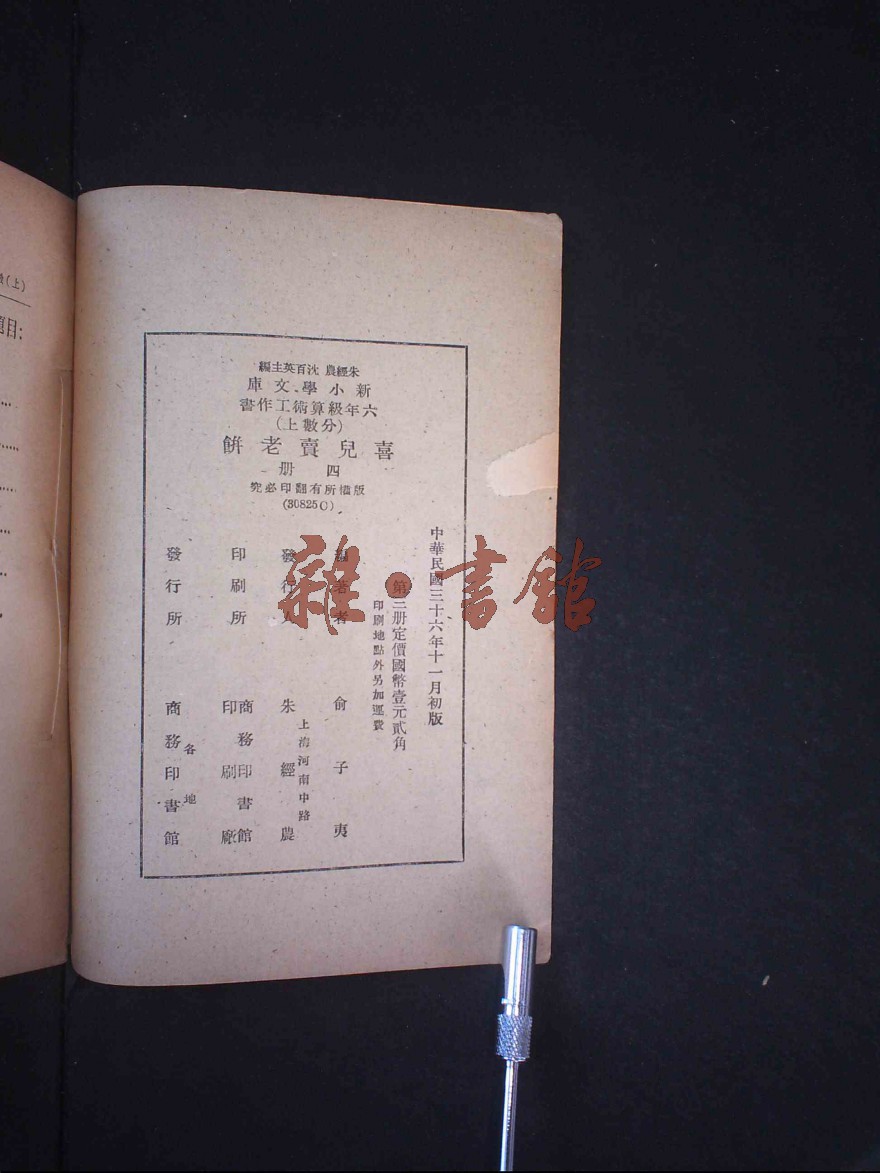 朱經農 沈百英主編
新小學文庫
六年級算術工作書
(分數上)
喜兒賣老餅
四册
版權所有翻印必究
(30825C)
中華民國三十六年十一月初版
第三册定價國幣壹元貳角
印刷地點外另加運費
編著者 俞子夷
發行人 朱經農
上海河南中路
印刷所 商務印書館印刷廠
發行所 商務印書館
各地
雜·書館
(上)
題目: